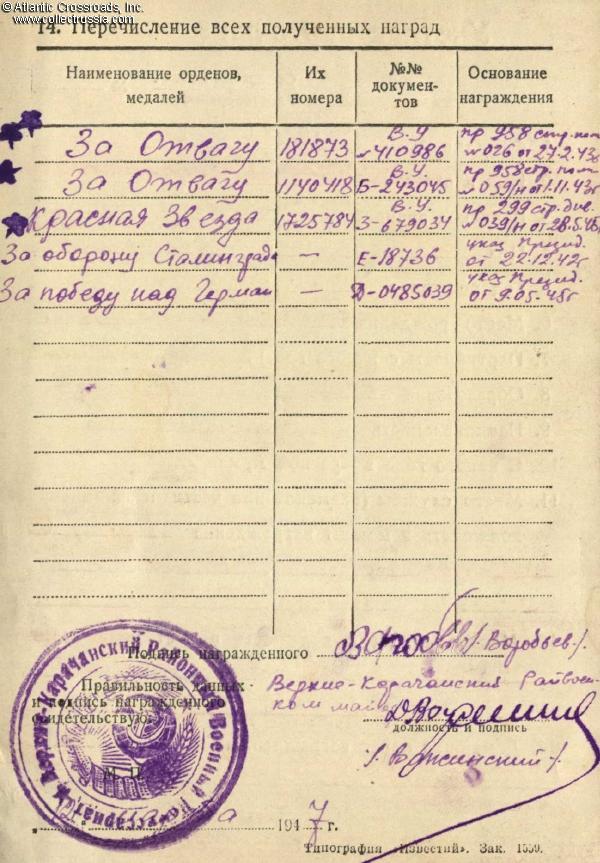 © Atlantic Crossroads, Inc.
www.collectrussia.com
14. Перечисление всех полученных наград
Наименование орденов, медалей
Их номера
№№ документов
Основание награждения
За Отвагу 181873 В.У. №410986 пр 958 стр. пол № 026 от 27.2.43г
За Отвагу 1140418 В.У. Б-243045 пр 958 стр. пол № 059/н от 1.11.43г
Красная Звезда 1725784 В.У. З-679034 пр. 299 стр. див. № 039/н от 28.5.45г
За оборону Сталинграда — Е-18736 указ Презид. от 22.12.42г
За победу над Герман — Д-0485039 указ Презид. от 9.05.45г
Подпись награжденного /.Воробьев./
Правильность данных Верхне-Карачанский Райвоен-
и подпись награжденного ком майор
свидетельствую:
должность и подпись
М. П. /.Важинский./
1947 г.
Типография «Известий». Зак. 1559.
Верхне-Карачанский Районный Военный Комиссариат